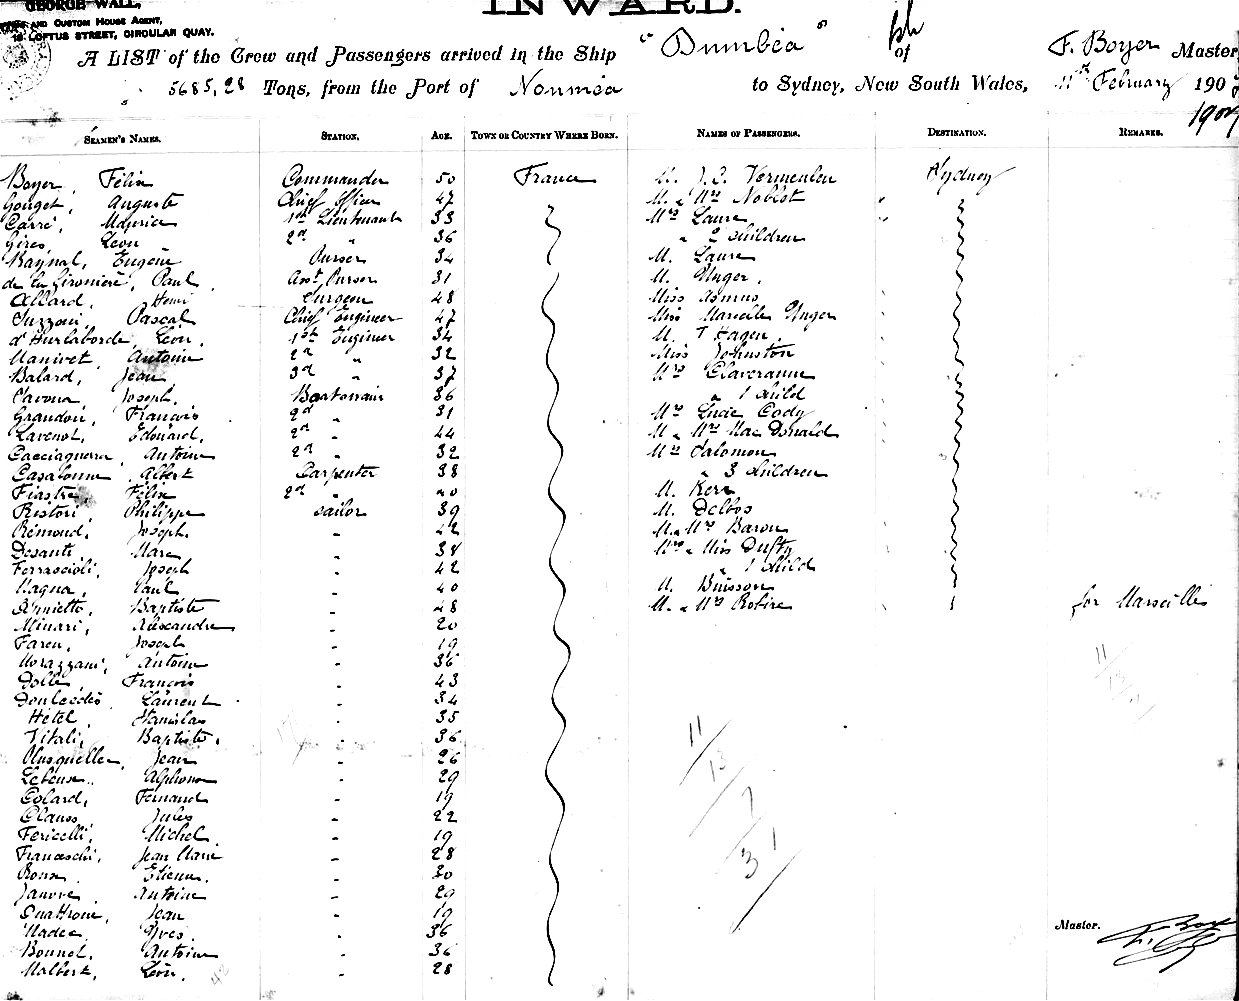 INWARD.
GEORGE WALL,
AND CUSTOM HOUSE AGENT,
LOFTUS STREET, CIRCULAR QUAY.
A LIST of the Crew and Passengers arrived in the Ship "Dumbéa" of F. Boyer Master
5685,28 Tons, from the Port of Nouméa to Sydney, New South Wales, 11th February 190
1904
SEAMEN'S NAMES. STATION. AGE. TOWN OR COUNTRY WHERE BORN. NAMES OF PASSENGERS. DESTINATION. REMARKS.
Boyer, Félix Commander 50 France M. J. C. Vermeulen Sydney
Gouget, Auguste Chief Officer 47 M. & Mrs Noblot "
Carré, Maurice 1st Lieutenant 33 Mrs Laure
Gires, Léon 2d " 36 " 2 children
Raynal, Eugène Purser 34 M. Laure
de la Gironière, Paul Asst Purser 31 M. Unger
Allard, Henri Surgeon 48 Miss Asmus
Suzzoni, Pascal Chief Engineer 47 Miss Marcelle Unger
d'Hurlaborde, Léon 1st Engineer 34 M. T Hagen
Manivet, Antoine 2d " 32 Miss Johnston
Balard, Jean 3d " 37 Mrs Claveranne
Joseph 36 " 1 child
Grandon, François 2d 31 Mrs Lucie Cody
Lavenot, Edouard 2d " 44 M. & Mrs Mac Donald
Cacciaguerra, Antoine 2d " 32 Mrs Salomon
Casalonne, Albert Carpenter 38 " 3 children
Fiastre, Félix 2d " 40 M. Kerr
Ristori, Philippe Sailor 39 M. Delbos
Rémond, Joseph " 42 M. & Mrs Baron
Desanti, Marc " 38 Mrs & Miss Dufty
Ferrascioli, Joseph " 42 " 1 child
Magna, Paul " 40 M. Buisson
Baptiste " 48 M. & Mrs Rofire for Marseilles
Minari, Alexandre " 20
Faren, Joseph " 19
Morazzani, Antoine " 36
Dolle, François " 43
Laurent " 34
Hétel, Stanislas " 35
Vitali, Baptiste " 36
Jean " 26
Alphonse " 29
Colard, Fernand " 19
Clauss, Jules " 22
Fericelli, Michel " 19
Franceschi, Jean Marie " 28
Roux, Etienne " 30
Janore, Antoine " 29
Quattrone, Jean " 19
Madec, Yves " 36
Bonnel, Antoine " 36
Malbert, Léon " 28
11
13
7
31
Master.
F. Boyer